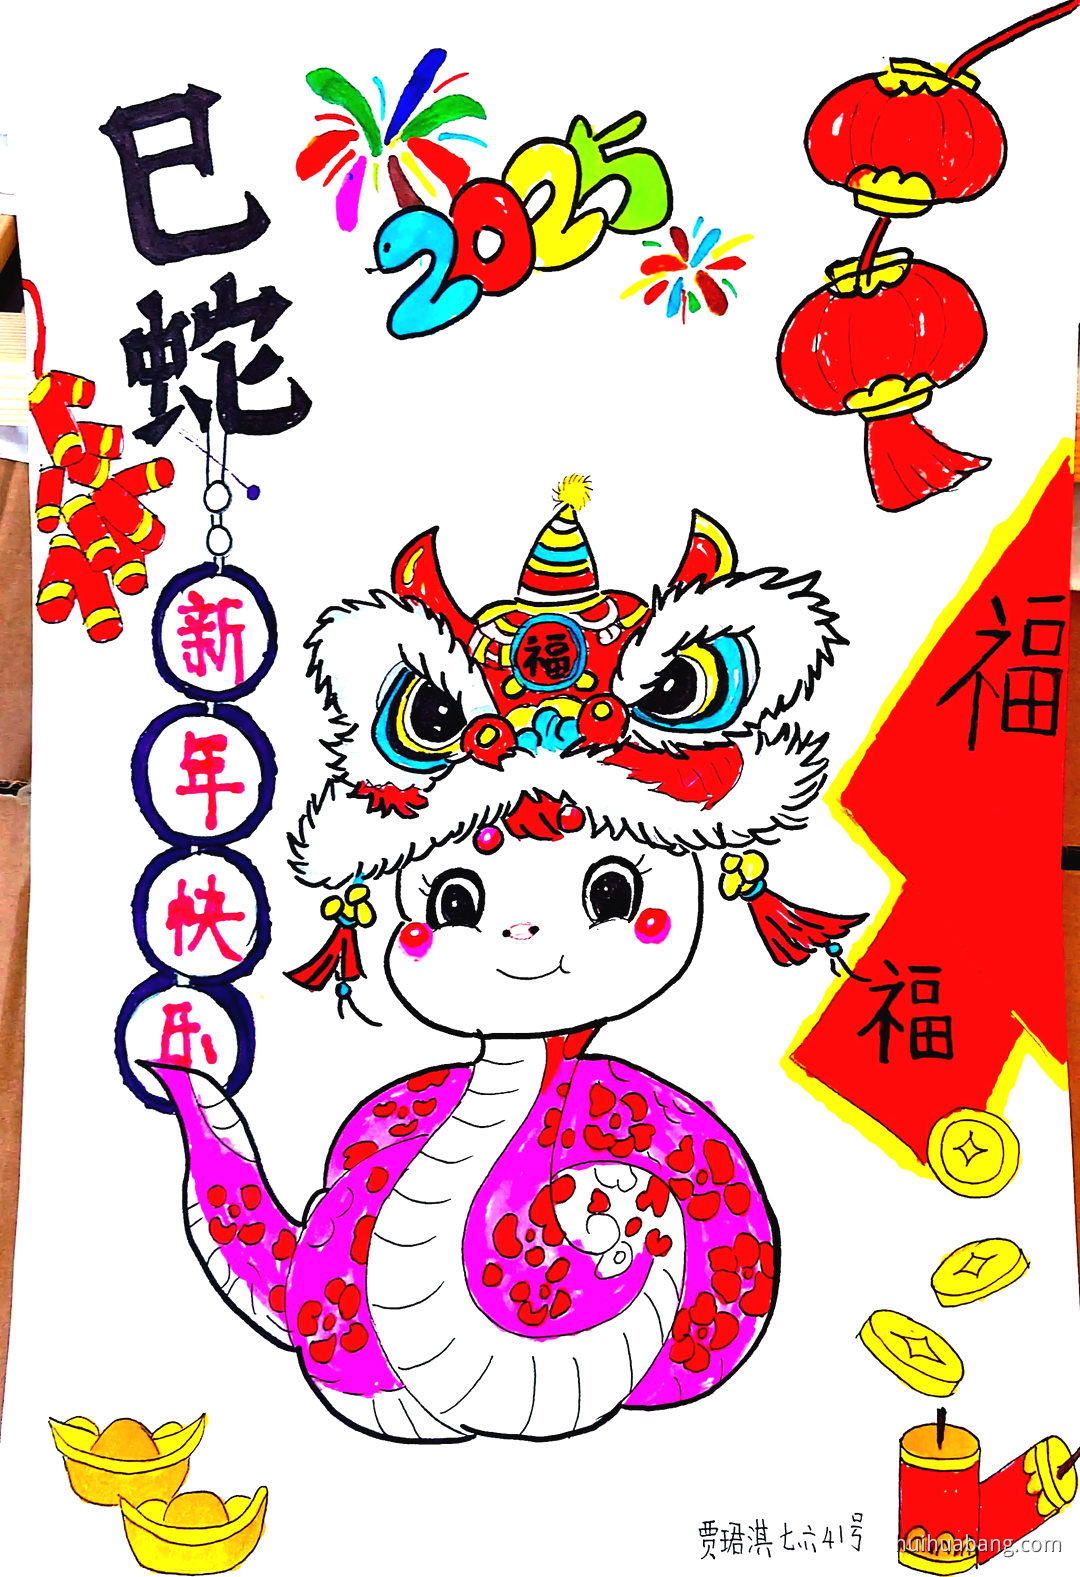 巳
蛇
2025
新
年
快
乐
福
福
福
贾珺淇七六41号
huihuabang.com